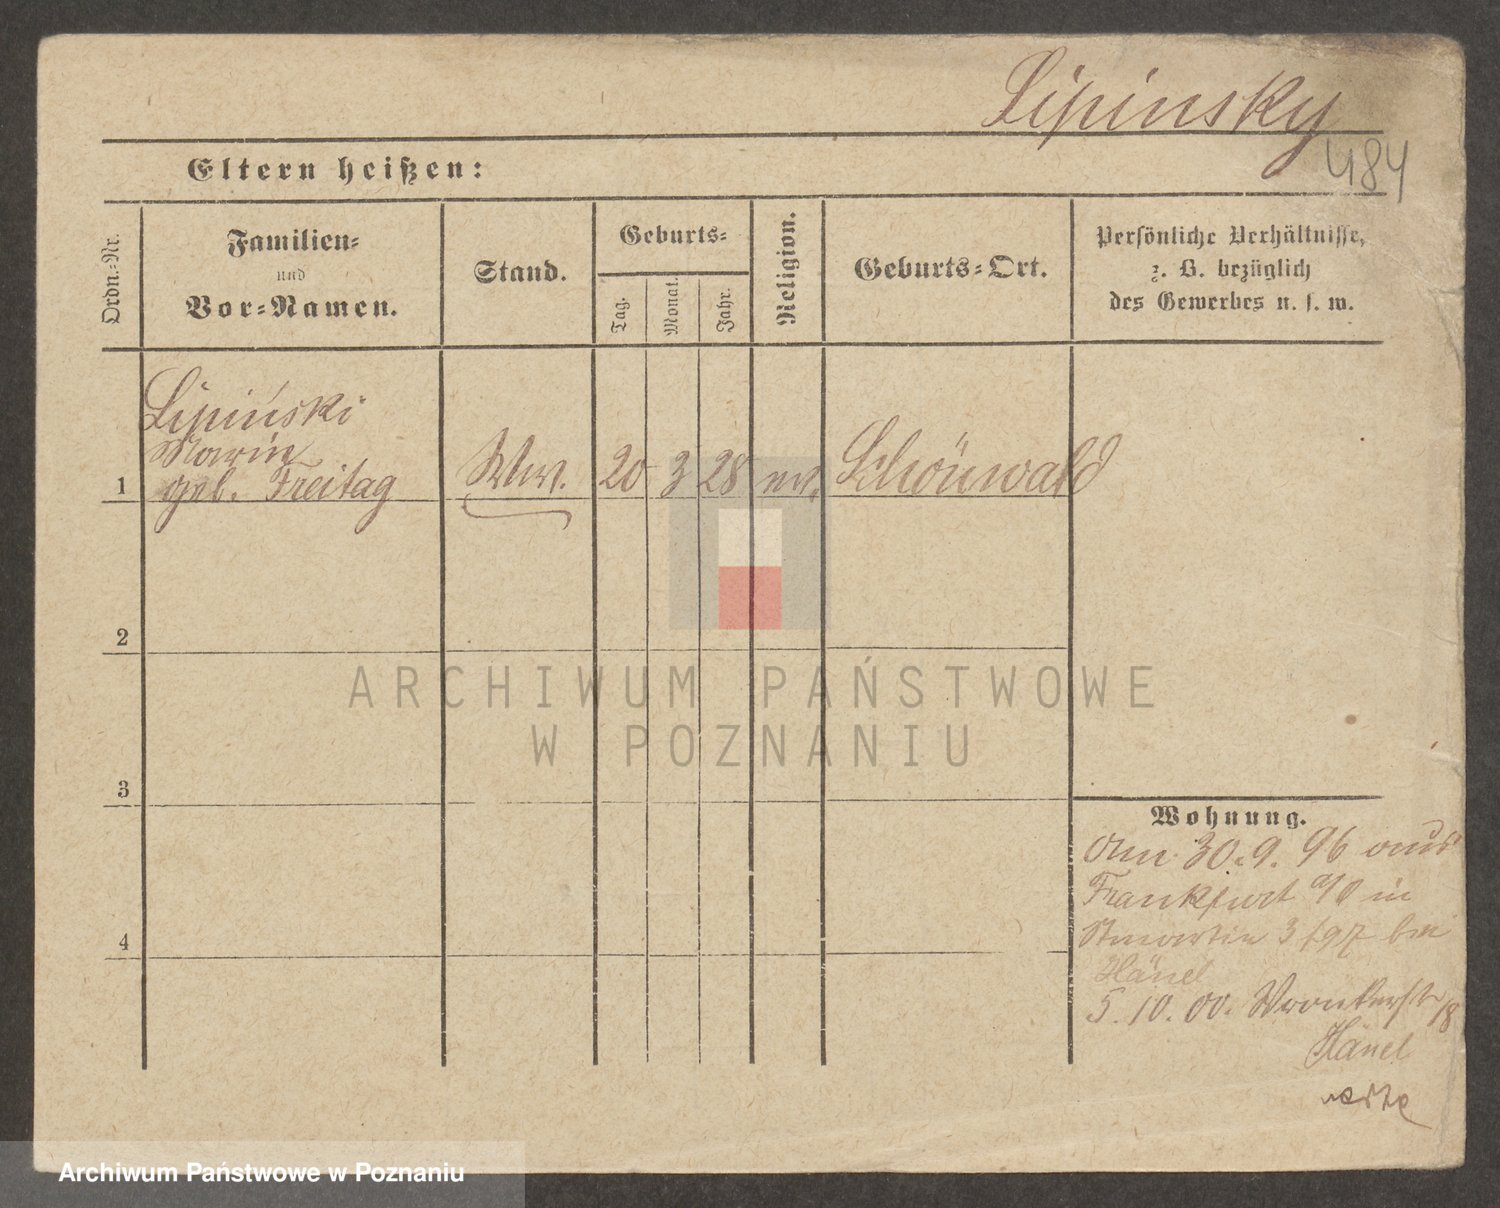 Lipinsky
484
Eltern heißen:
Ordn.-Nr.
Familien-
und
Vor-Namen.
Stand.
Geburts-
Tag.
Monat.
Jahr.
Religion.
Geburts-Ort.
Persönliche Verhältnisse,
z. B. bezüglich
des Gewerbes u. s. w.
Lipiński
Marie
geb. Freitag
1
Ww.
20
3
28
Schönwald
2
3
4
Wohnung.
Am 30.9.96 aus
Frankfurt a/O in
Stmartin 3 /97 bei
Hänel
5.10.00. Wronkerstr 18
Hänel
ARCHIWUM PAŃSTWOWE
W POZNANIU
Archiwum Państwowe w Poznaniu